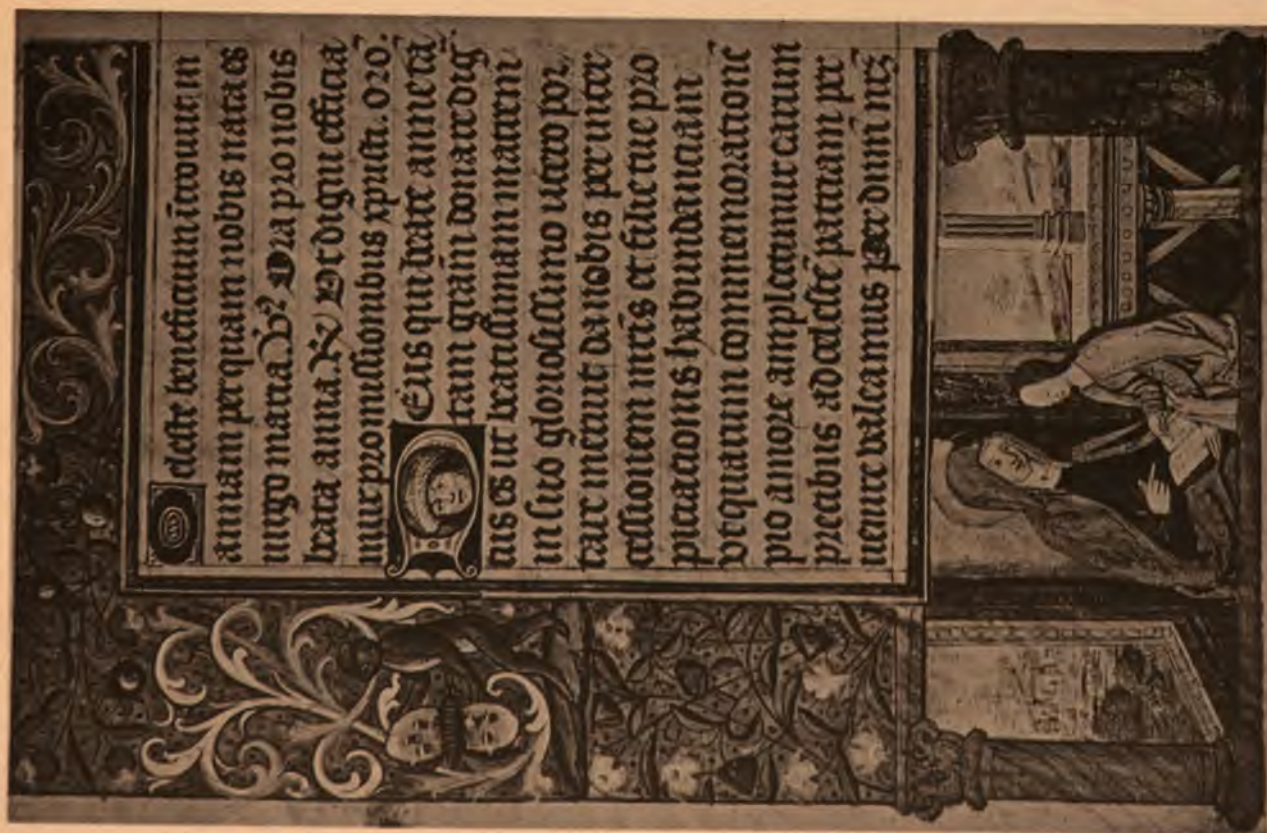 Celeste beneficium ītroiuit in
annam per quam nobis nata es
uirgo maria. V̄ Ora pro nobis
beata anna. R̄ Vt digni efficia
mur promissionibus xpristi. oro.
Deus qui beate anne tā
tam grām donare diḡ
tus es ut beatissimam matrem
in suo gloriosissimo utero por
tare meruit da nobis per inter
cessionem mr̄is et filie tue pro
piciacionis habundanciam
vt quarum commemoracionē
pio amore amplectimur earum
precibus ad celestē patriam per
uenire valeamus per dnm̄ nrz̄